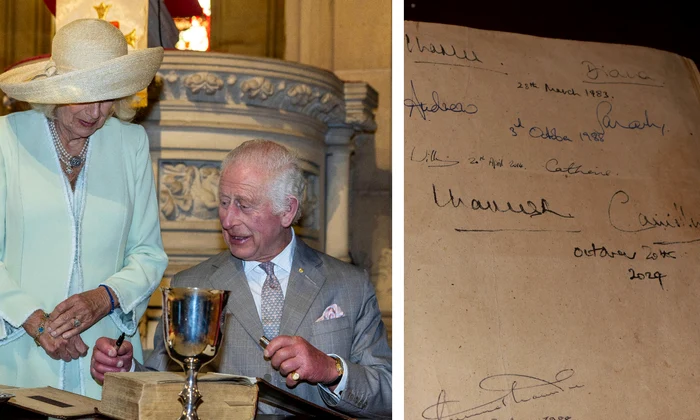 Charles Diana
28th March 1983.
Andrew Sarah.
3rd October 1988
20th April 2014. Catherine
Charles R. Camilla
October 20th
2024
1988